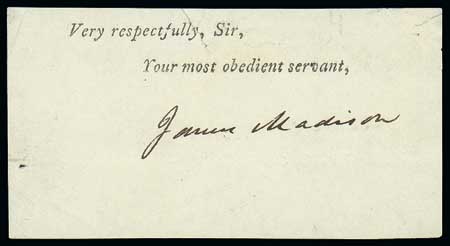 Very respectfully, Sir,
Your most obedient servant,
James Madison